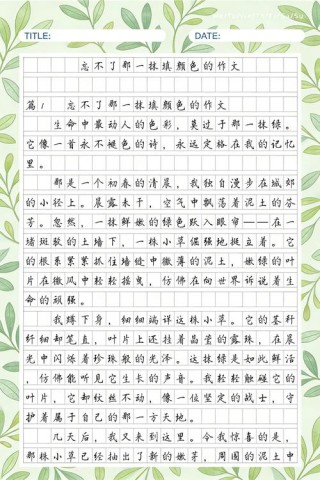 TITLE: DATE:
忘不了那一抹填颜色的作文
篇1 忘不了那一抹填颜色的作文
生命中最动人的色彩，莫过于那一抹绿。
它像一首永不褪色的诗，永远定格在我的记忆
里。
那是一个初春的清晨，我独自漫步在城郊
的小径上。晨露未干，空气中飘荡着泥土的芬
芳。忽然，一抹鲜嫩的绿色跃入眼帘——在一
堵斑驳的土墙下，一株小草倔强地挺立着。它
的根系紧紧抓住墙缝中微薄的泥土，嫩绿的叶
片在微风中轻轻摇曳，仿佛在向世界诉说着生
命的顽强。
我蹲下身，细细端详这株小草。它的茎秆
纤细却笔直，叶片上还挂着晶莹的露珠，在晨
光中闪烁着珍珠般的光泽。这抹绿是如此鲜活
，仿佛能听见它生长的声音。我轻轻触碰它的
叶片，它却纹丝不动，像一位坚定的战士，守
护着属于自己的那一方天地。
几天后，我又来到这里。令我惊喜的是，
那株小草已经抽出了新的嫩芽，周围的泥土中